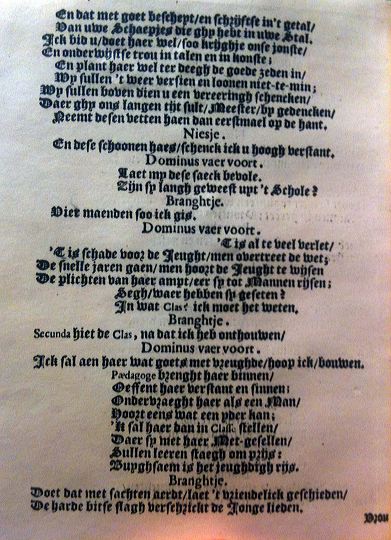 En dat met goet beschept/en schrijftse in't getal/
Van uwe Schaepjes die ghy hebt in uwe Stal.
Ick bid u/doet haer wel/soo krijghje onse jonste/
En onderwijstse trou in talen en in konste;
En plant haer wel ter deegh de goede zeden in/
Wy sullen 't weer versien en loonen niet-te-min;
Wy sullen boven dien u een vereeringh schencken/
Daer ghy ons langen tijt sult/Meester/by gedencken/
Neemt desen vetten haen dan eerstmael op de hant.
Niesje.
En dese schoonen haes/schenck ick u hoogh verstant.
Dominus vaer voort.
Laet my dese saeck bevole.
Zijn sy langh geweest upt 't Schole?
Branghtje.
Vier maenden soo ick gis.
Dominus vaer voort.
'T is al te veel verlet/
'T is schade voor de Jeught/men overtreet de wet;
De snelle jaren gaen/men hoort de Jeught te wijsen
De plichten van haer ampt/eer sy tot Mannen rijsen;
Segh/waer hebben sy geseten?
In wat Clas? ick moet het weten.
Branghtje.
Secunda hiet de Clas, na dat ick heb onthouwen/
Dominus vaer voort.
Ick sal aen haer wat goets met vreughde/hoop ick/bouwen.
Pædagoge brenght haer binnen/
Oeffent haer verstant en sinnen;
Ondervraeght haer als een Man/
Voort eens wat een yder kan;
'k sal haer dan in Classe stellen/
Daer sy met haer Met-gesellen/
Sullen leeren staegh om prijs:
Buyghsaem is het jeughdigh rijs.
Branghtje.
Doet dat met sachten aerdt/laet 't vriendelick geschieden/
De harde bitse slagh verschrickt de Jonge lieden.
Vrou